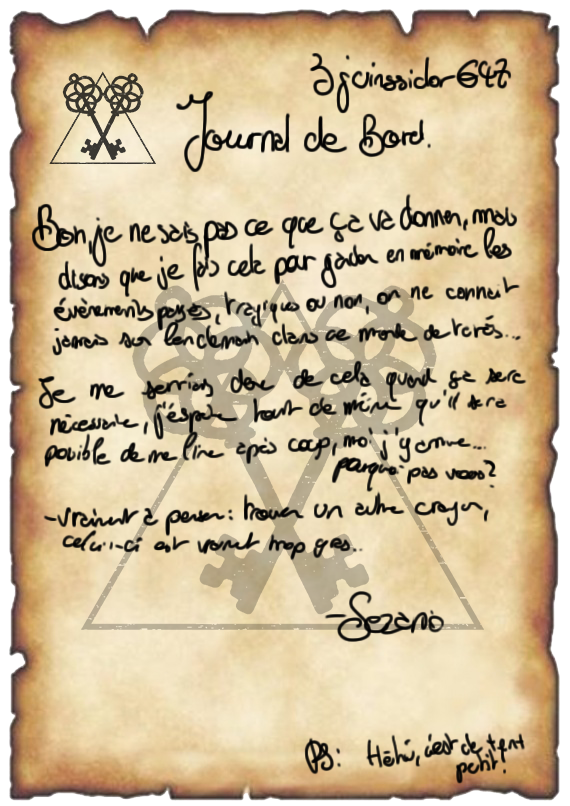 3 juinssidor 647
Journal de Bord.
Bon, je ne sais pas ce que ça va donner, mais
disons que je fais cela pour garder en mémoire les
évènements passés, tragiques ou non, on ne connait
jamais son lendemain dans ce monde de tarés...
Je me servirais donc de cela quand ça sera
nécessaire, j'espère tout de même qu'il sera
possible de me lire après coup, moi j'y arrive...
pourquoi pas vous?
-vraiment à penser: trouver un autre crayon,
celui-ci est vraiment trop gros..
-Sezario
PS: Héhé, c'est de
petit!